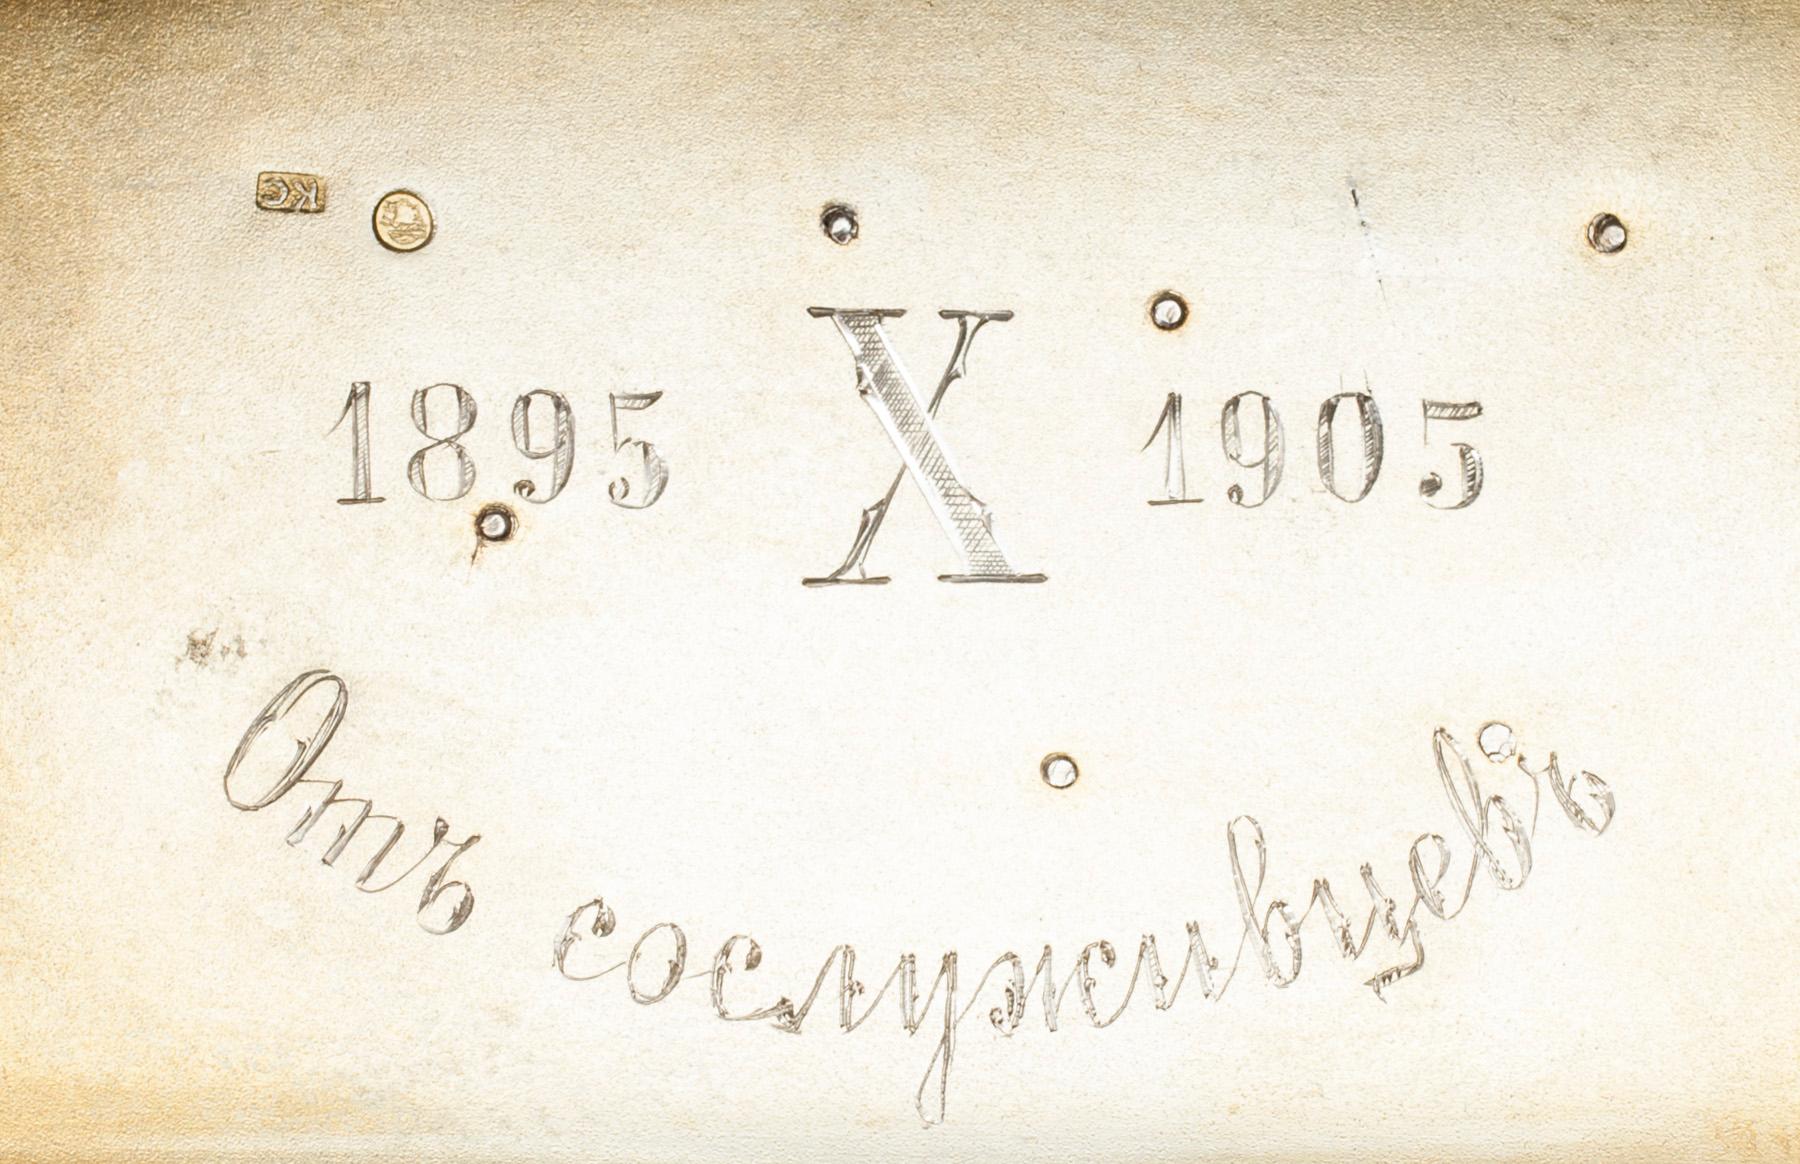 КС
1895 X 1905
Отъ сослуживцевъ